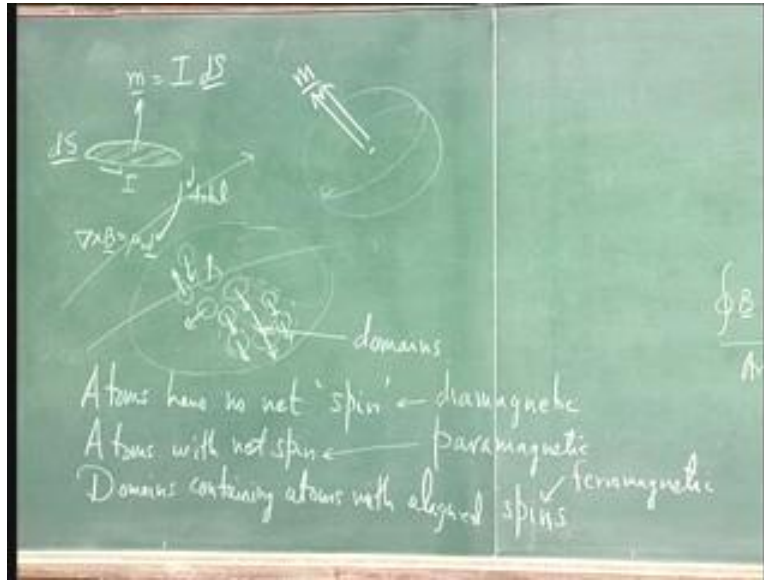 m = I dS
m
dS
I
J total
∇×B = μ₀J
domains
∮B
Atoms have no net 'spin' ← diamagnetic
Atoms with net spin ← paramagnetic
Domains containing atoms with aligned spins
ferromagnetic